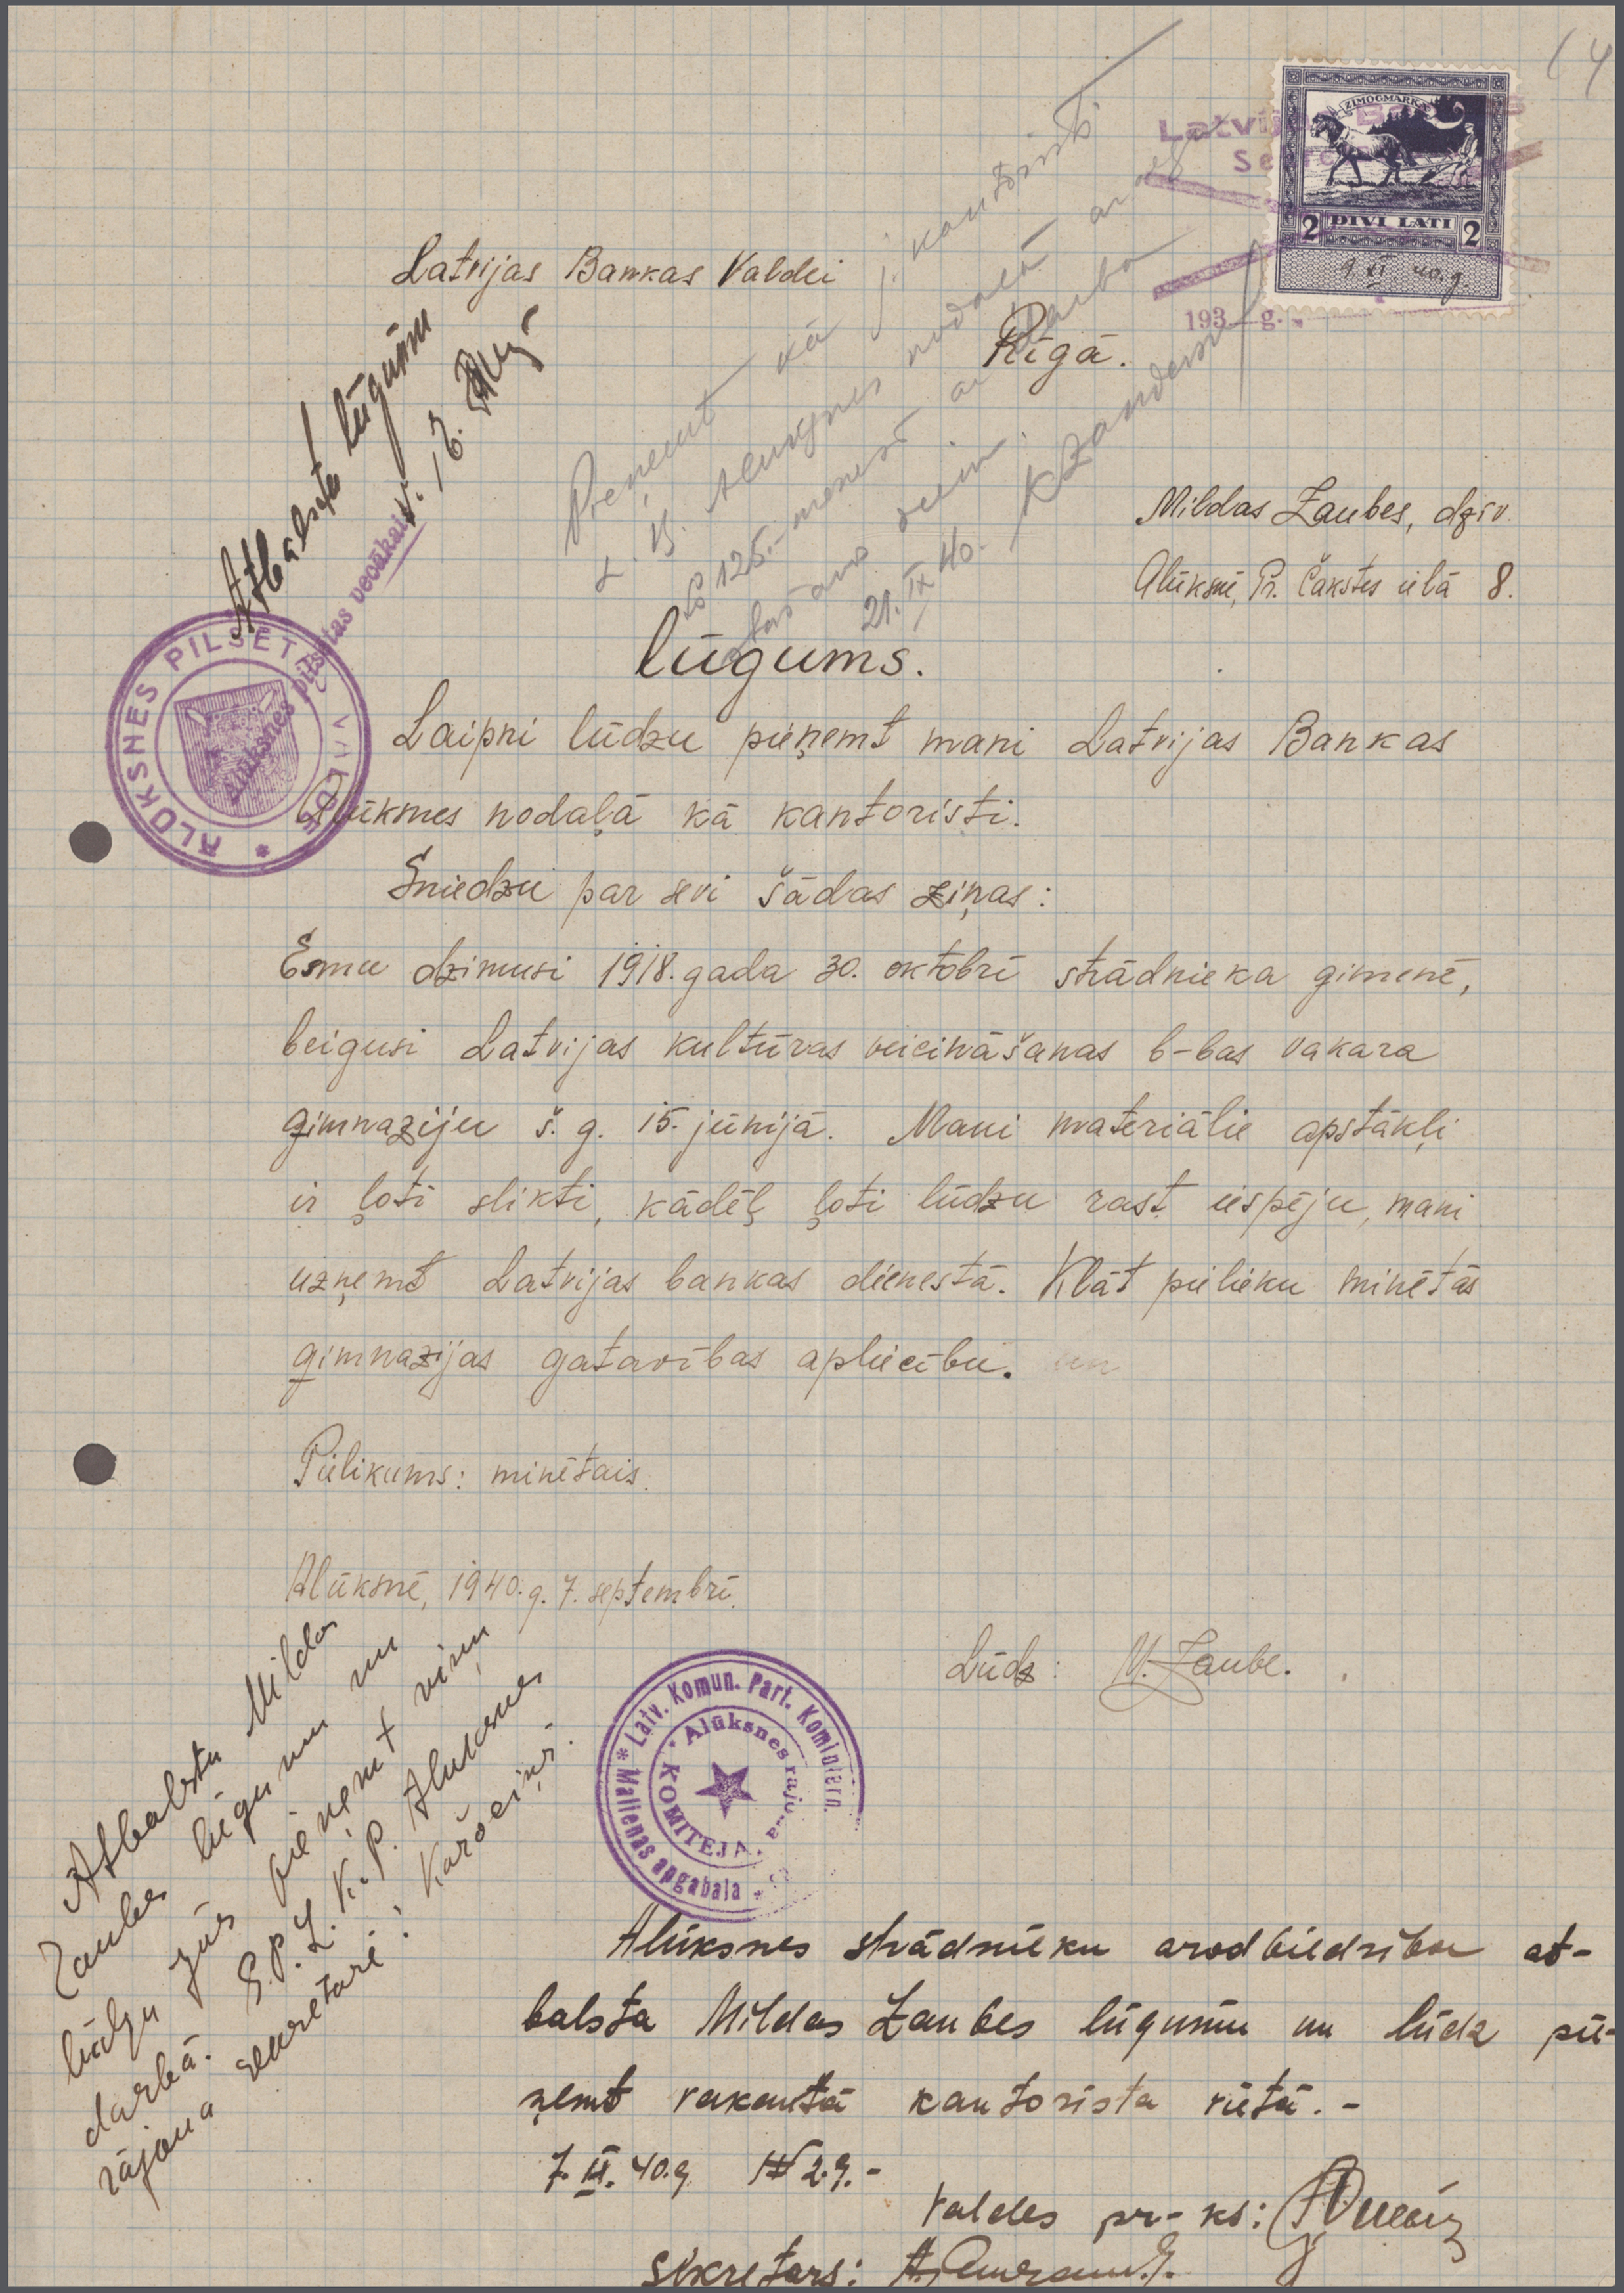 14
ZĪMOGMARKA
2 DIVI LATI 2
9. XI 40. g
Latvijas
193 g.
Latvijas Bankas Valdei
Rīgā.
Mildas Zaubes, dzīv.
Alūksnē, Pr. Čakstes ielā 8.
Atbalsta lūgumu
Alūksnes pilsētas vecākais
ALŪKSNES PILSĒTAS VALDE
Pieņemt kā j. kantoristi
L. B. Alūksnes nodaļā ar
Ls 125.- mēnesī
21. IX 40.
lūgums.
Laipni lūdzu pieņemt mani Latvijas Bankas
Alūksnes nodaļā kā kantoristi.
Sniedzu par sevi šādas ziņas:
Esmu dzimusi 1918. gada 30. oktobrī strādnieka ģimenē,
beigusi Latvijas kultūras veicināšanas b-bas vakara
ģimnaziju š. g. 15. jūnijā. Mani materiālie apstākļi
ir ļoti slikti, kādēļ ļoti lūdzu rast iespēju, mani
uzņemt Latvijas bankas dienestā. Klāt pielieku minētās
ģimnazijas gatavības apliecību.
Pielikums: minētais.
Alūksnē, 1940. g. 7. septembrī.
Lūdz: M. Zaube.
Latv. Komun. Part. Komintern.
Malienas apgabala
Alūksnes rajona
KOMITEJA
Atbalstu Mildas
Zaubes lūgumu un
lūdzu jūs pieņemt viņu
darbā. L. K. P. Alūksnes
rājona sekretārē:
Alūksnes strādnieku arodbiedrība at-
balsta Mildas Zaubes lūgumu un lūdz pie-
ņemt vakantā kantorista vietā. -
7. IX. 40. g № 29. -
Valdes pr-ks:
Sekretars: